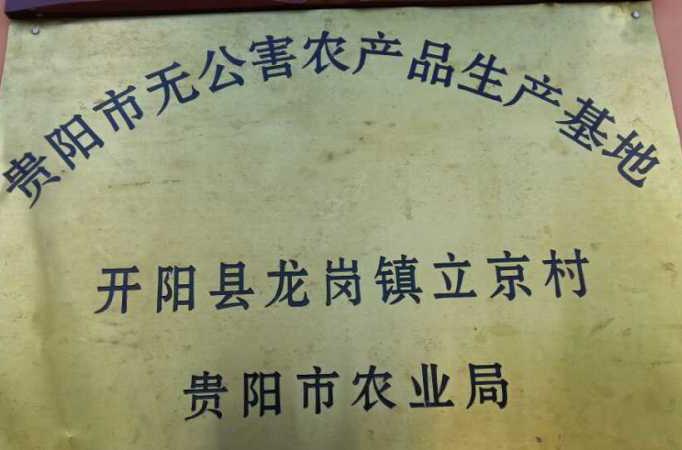 贵阳市无公害农产品生产基地
开阳县龙岗镇立京村
贵阳市农业局